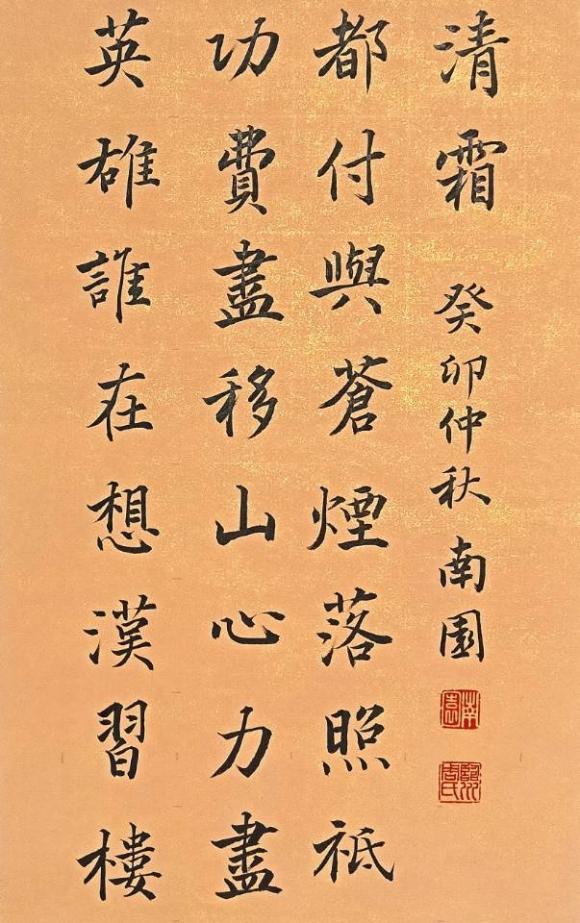 英雄誰在想漢習樓
功費盡移山心力盡
都付與蒼煙落照祗
清霜
癸卯仲秋南園